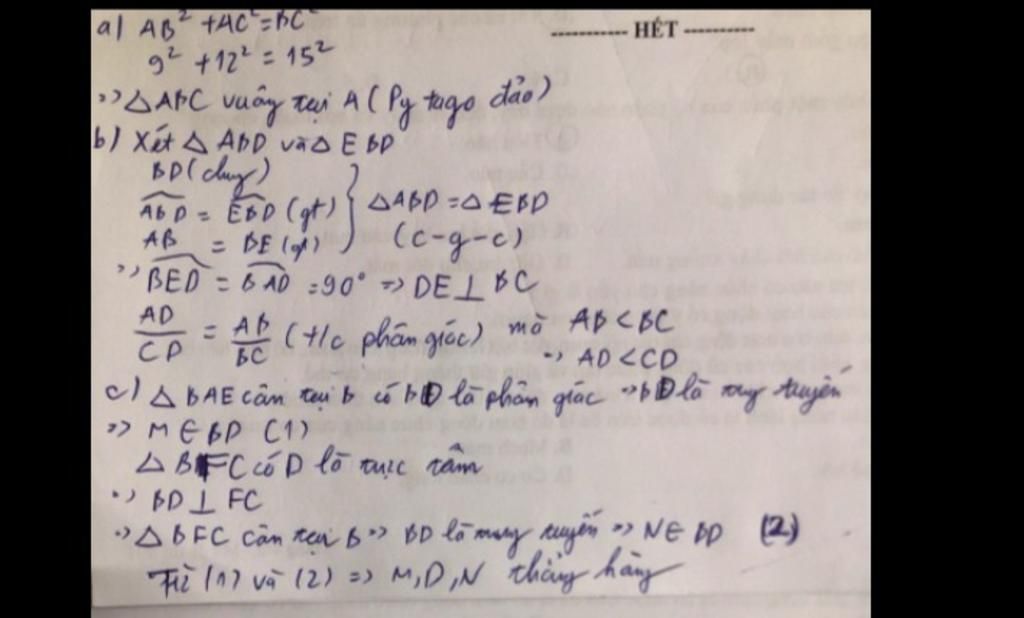 a) AB² + AC² = BC²
----------- HẾT -----------
9² + 12² = 15²
=> △ABC vuông tại A (Py tago đảo)
b) Xét △ ABD và △ EBD
BD (chung)
ABD = EBD (gt)
AB = BE (gt)
△ABD = △EBD
(c-g-c)
=> BED = BAD = 90° => DE ⊥ BC
AD/CD = AB/BC (t/c phân giác) mà AB < BC
=> AD < CD
c) △ BAE cân tại B có BD là phân giác => BD là trung tuyến
=> M ∈ BD (1)
△ BFC có D là trực tâm
=> BD ⊥ FC
=> △ BFC cân tại B => BD là trung tuyến => N ∈ BD (2)
Từ (1) và (2) => M, D, N thẳng hàng